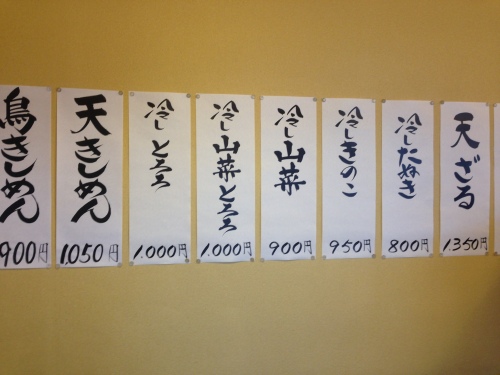 天ざる
1.350円
冷したぬき
800円
冷しきのこ
950円
冷し山菜
900円
冷し山菜とろろ
1.000円
冷しとろろ
1.000円
天きしめん
1.050円
鳥きしめん
900円